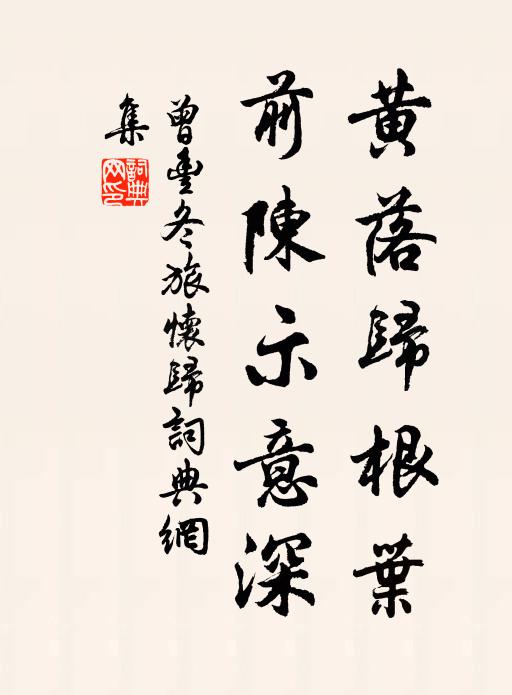 黄落歸根葉
前陳示意深
曾豐冬旅懷歸詞典網
集
詞典網印